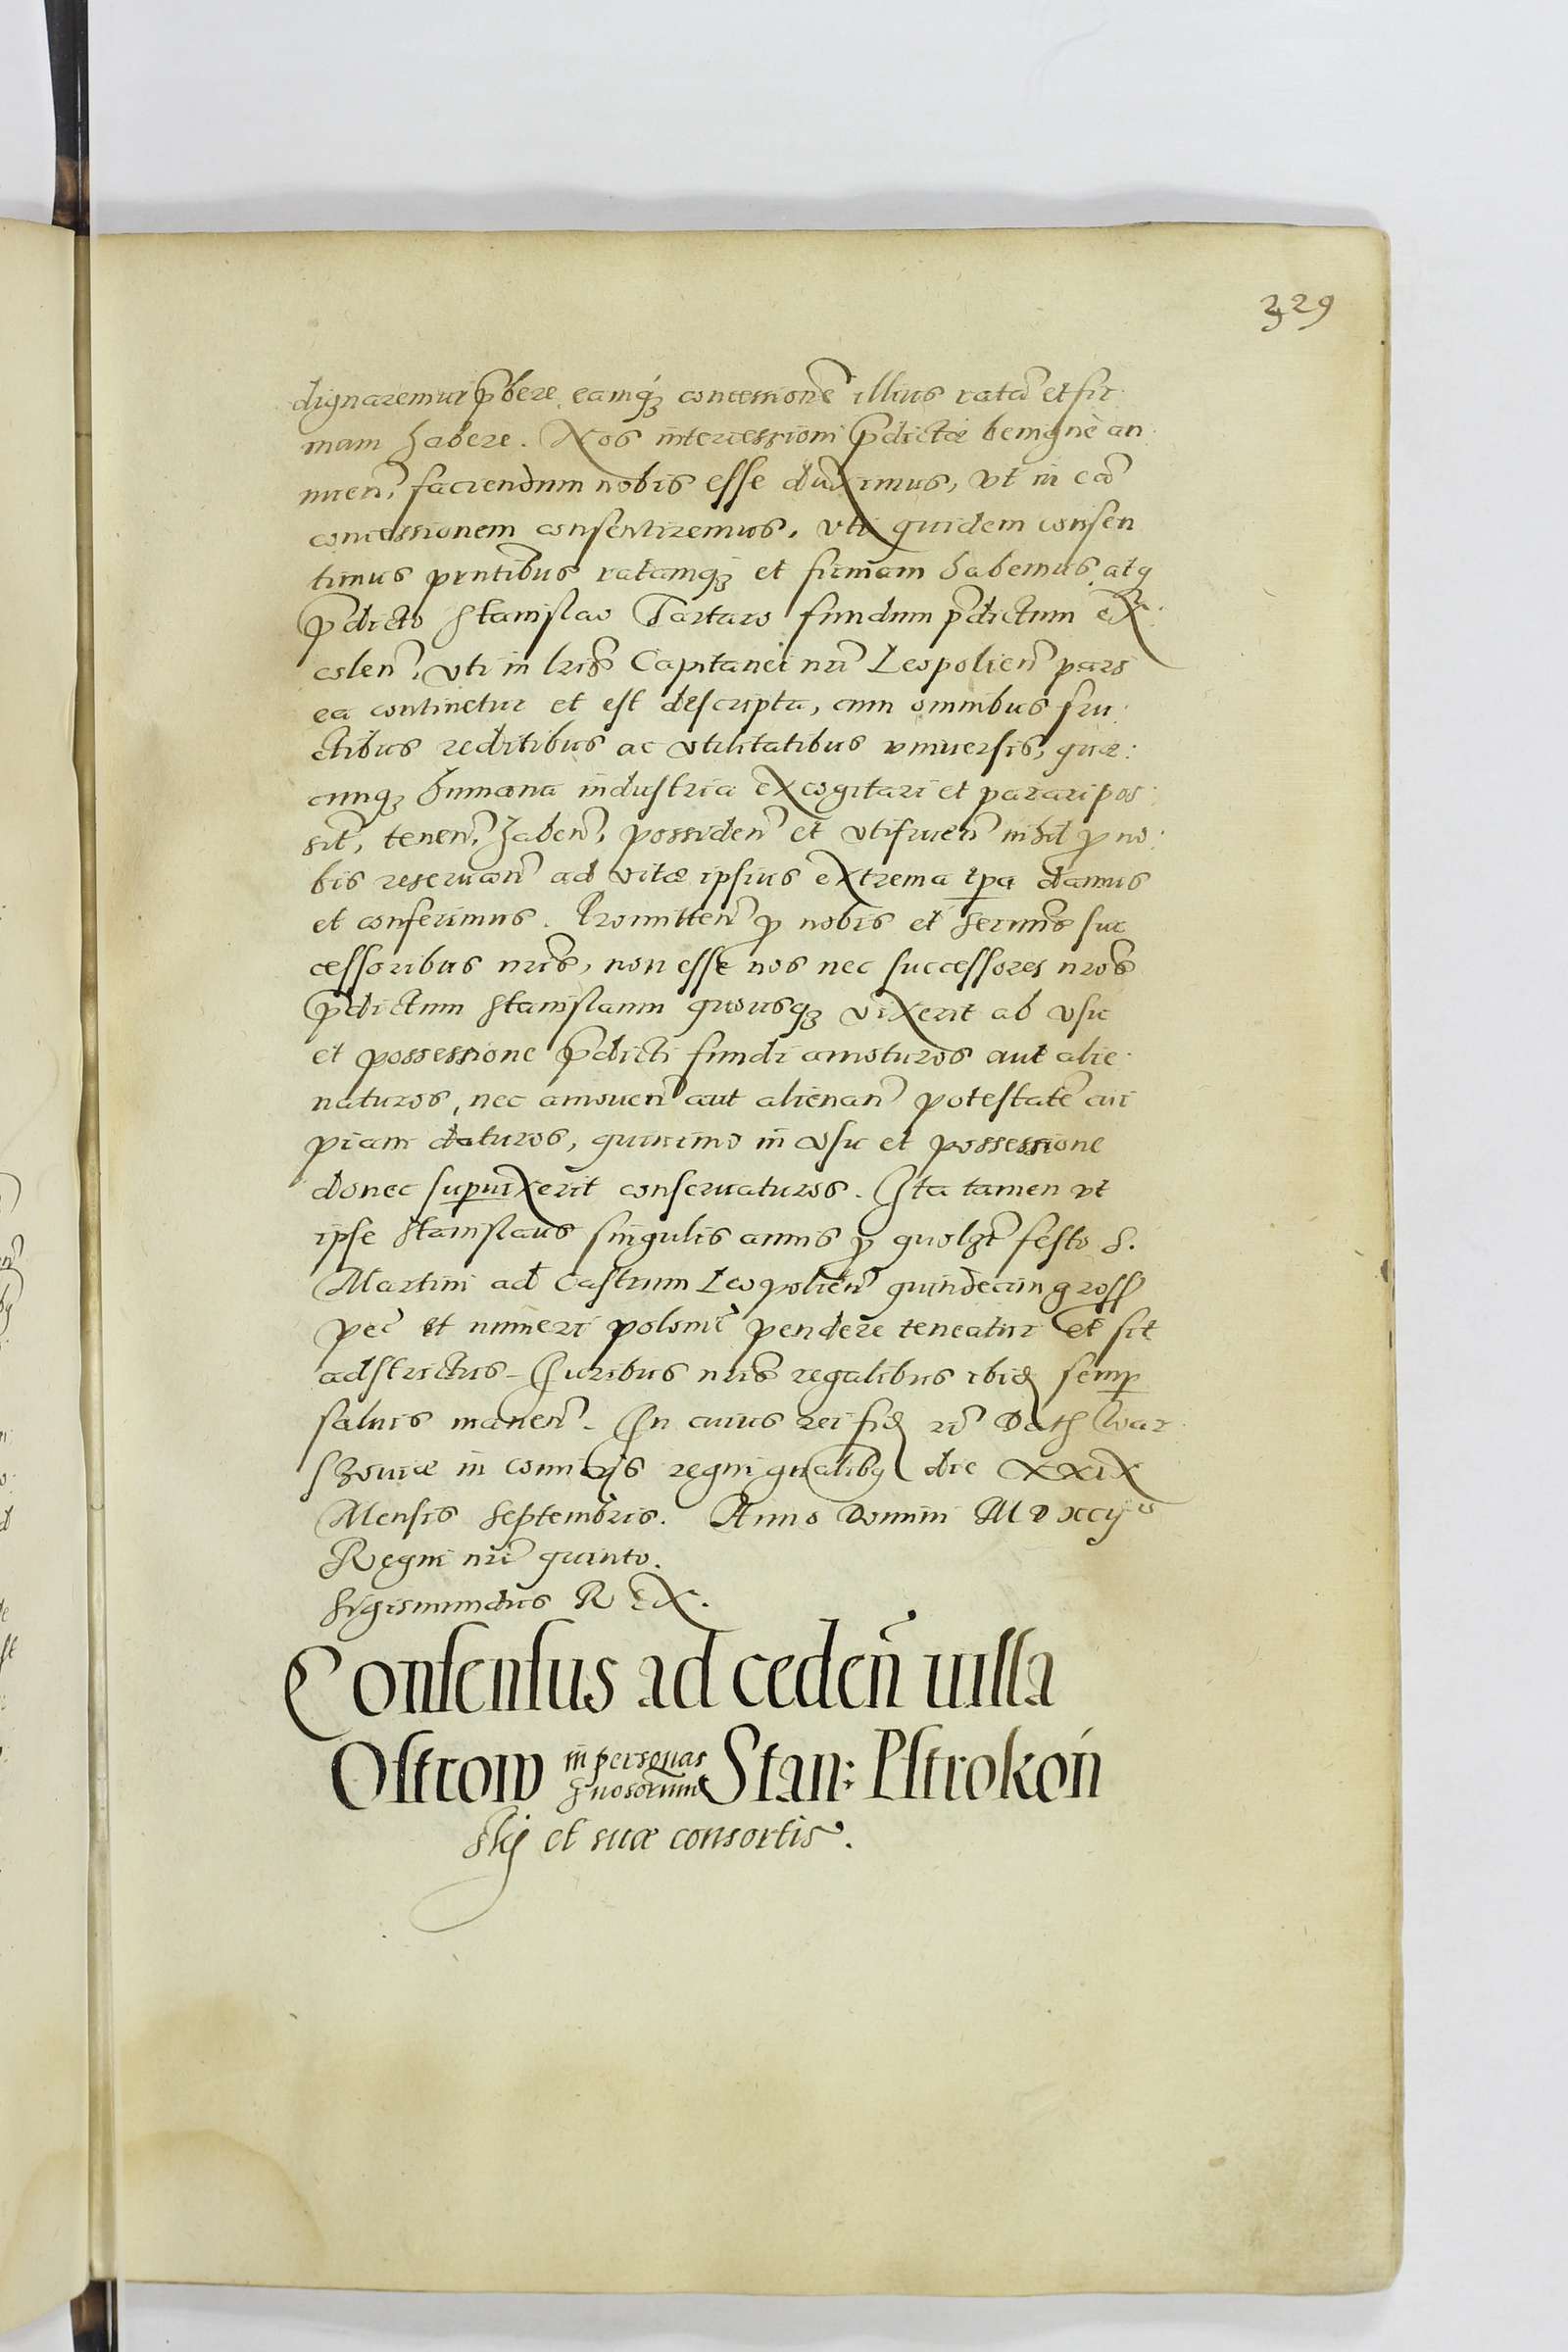 329
dignaremur p̃bere, eamq́ꝫ concessionẽ illius ratã et fir
mam habere. Nos intercessioni p̃dictæ benignè an
nuen̄, faciendum nobis esse duximus, vt in eã
concessionem consentiremus, vti quidem consen
timus pn̄tibus ratamqꝫ et firmam habemus, atq
p̃dicto Stanislao Tartaro fundum p̃dictum ex
colen̄, vti in lr̃is Capitanei nr̃i Leopolien̄ pars
ea continetur et est descripta, cum omnibus fru
ctibus reditibus ac vtilitatibus vniuersis, quæ:
cunqꝫ humana industria excogitari et parari pos
sit, tenen̄, haben̄, possiden̄ et vtifruen̄ nihil ꝓ no
bis reseruan̄ ad vitæ ipsius extrema tp̄a damus
et conferimus. Promitten̄ ꝓ nobis et Serm̃is suc
cessoribus nr̃is, non esse nos nec successores nr̃os
p̃dictum Stanislaum quousqꝫ vixerit ab vsu
et possessione p̃dicti fundi amoturos aut alie
naturos, nec amouen̄ aut alienan̄ potestatẽ cui
piam daturos, quinimo in vsu et possessione
donec supuixerit conseruaturos. Ita tamen vt
ipse Stanislaus singulis annis ꝓ quolꝫt festo S.
Martini ad Castrum Leopolien̄ quindecim gross
pec̃ et numeri polonic̃ pendere teneatur et sit
adstrictus – Iuribus nr̃is regalibus ibid̃ semp
saluis manen̄. In cuius rei fid̃ r̃c Dat War
szouiæ in comitijs regni gnālibꝫ die XXIX
Mensis Septembris. Anno Domini MDXCIJº
Regni nr̃i quinto.
Sigismundus REX.
Consensus ad ceden̄ uilla
Ostrow in personas Stan: Pstrokoń
Gnosorum
skij et suæ consortis.